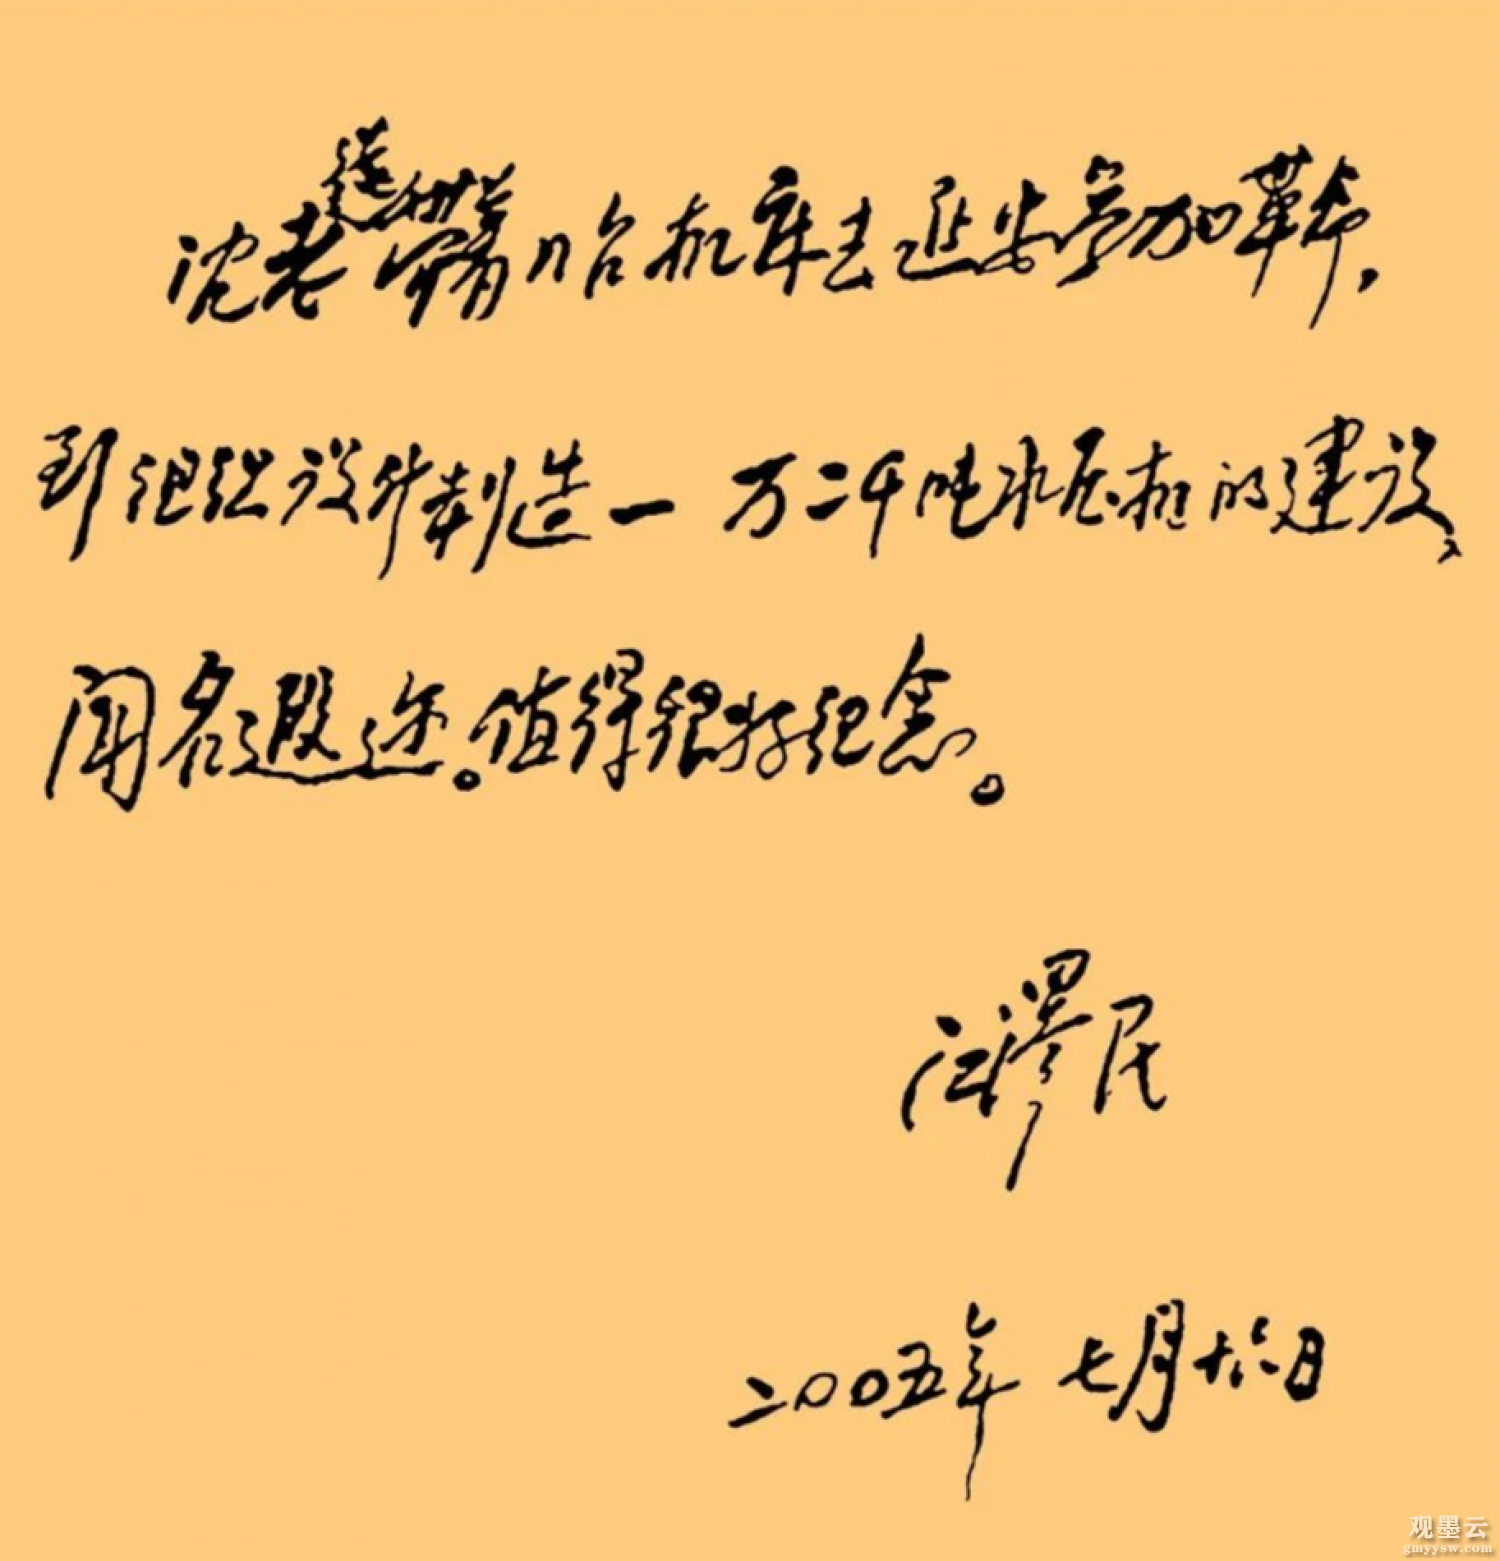 沈老带着几台机床去延安参加革命，
到组织设计制造一万二千吨水压机的建设，
闻名遐迩。值得很好纪念。
江泽民
二00五年七月十六日
观墨云
gmyysw.com